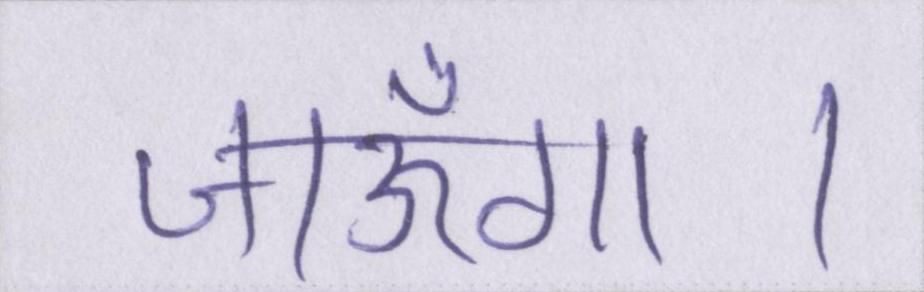 जाऊँगा ।